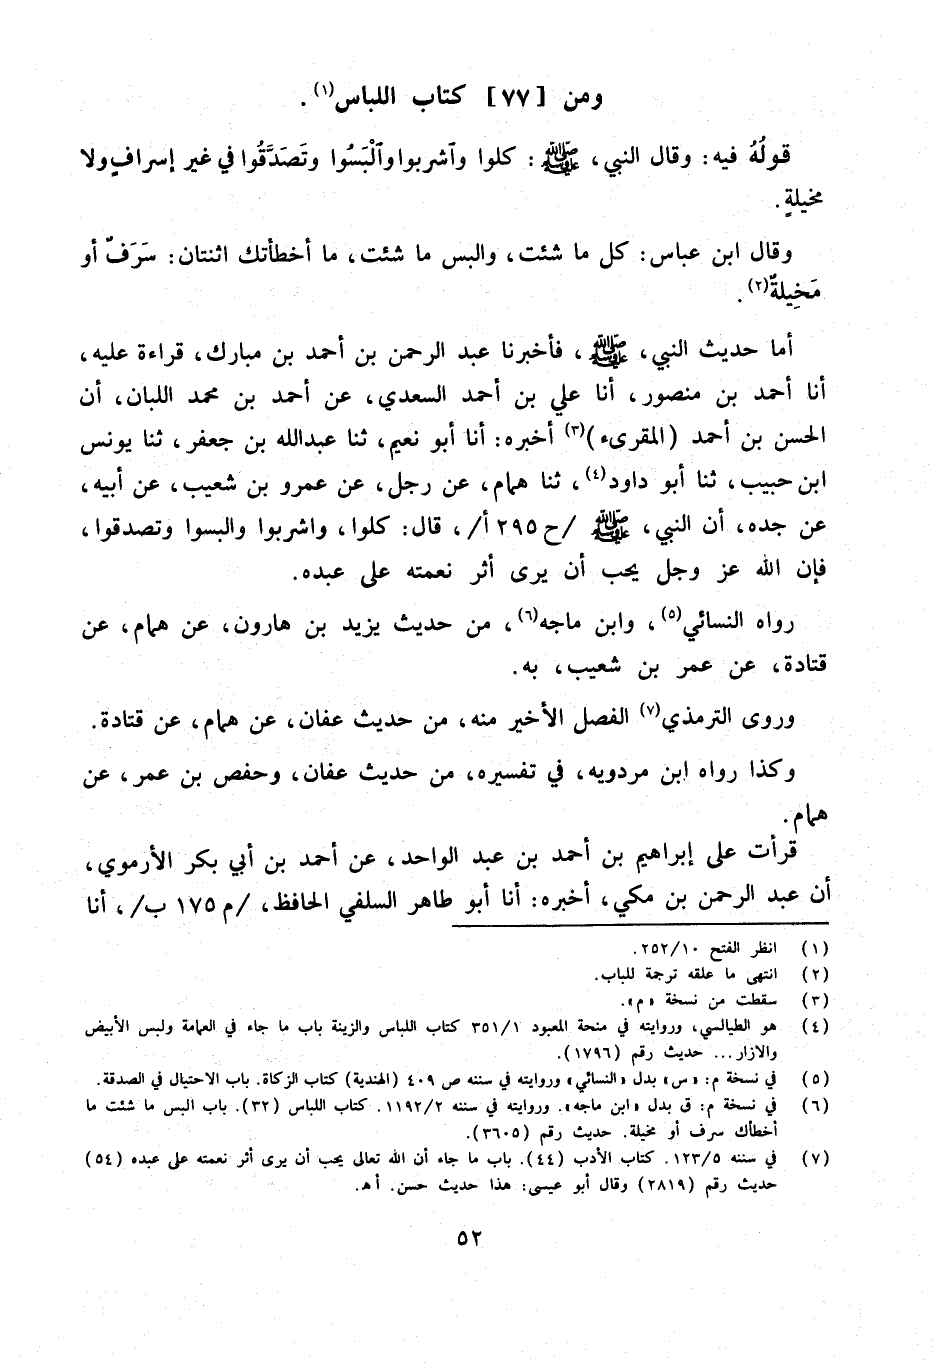 ومن [٧٧] كتاب اللباس(١).
قولُهُ فيه: وقال النبي، ﷺ: كلوا وٱشربوا وٱلْبَسُوا وتَصَدَّقُوا في غير إسرافٍ ولا
مخيلةٍ.
وقال ابن عباس: كل ما شئت، والبس ما شئت، ما أخطأتك اثنتان: سَرَفٌ أو
مَخِيلةٌ(٢).
أما حديث النبي، ﷺ، فأخبرنا عبد الرحمن بن أحمد بن مبارك، قراءة عليه،
أنا أحمد بن منصور، أنا علي بن أحمد السعدي، عن أحمد بن محمد اللبان، أن
الحسن بن أحمد (المقرىء)(٣) أخبره: أنا أبو نعيم، ثنا عبدالله بن جعفر، ثنا يونس
ابن حبيب، ثنا أبو داود(٤)، ثنا همام، عن رجل، عن عمرو بن شعيب، عن أبيه،
عن جده، أن النبي، ﷺ /ح ٢٩٥ أ/، قال: كلوا، واشربوا والبسوا وتصدقوا،
فإن الله عز وجل يحب أن يرى أثر نعمته على عبده.
رواه النسائي(٥)، وابن ماجه(٦)، من حديث يزيد بن هارون، عن همام، عن
قتادة، عن عمر بن شعيب، به.
وروى الترمذي(٧) الفصل الأخير منه، من حديث عفان، عن همام، عن قتادة.
وكذا رواه ابن مردويه، في تفسيره، من حديث عفان، وحفص بن عمر، عن
همام.
قرأت على إبراهيم بن أحمد بن عبد الواحد، عن أحمد بن أبي بكر الأرموي،
أن عبد الرحمن بن مكي، أخبره: أنا أبو طاهر السلفي الحافظ، /م ١٧٥ ب/، أنا
(١) انظر الفتح ٢٥٢/١٠.
(٢) انتهى ما علقه ترجمة للباب.
(٣) سقطت من نسخة «م».
(٤) هو الطيالسي، وروايته في منحة المعبود ٣٥١/١ كتاب اللباس والزينة باب ما جاء في العمامة ولبس الأبيض
والازار... حديث رقم (١٧٩٦).
(٥) في نسخة م: «س» بدل «النسائي» وروايته في سننه ص ٤٠٩ (الهندية) كتاب الزكاة. باب الاحتيال في الصدقة.
(٦) في نسخة م: ق بدل «ابن ماجه». وروايته في سننه ١١٩٢/٢. كتاب اللباس (٣٢). باب البس ما شئت ما
أخطأك سرف أو مخيلة. حديث رقم (٣٦٠٥).
(٧) في سننه ١٢٣/٥. كتاب الأدب (٤٤). باب ما جاء أن الله تعالى يحب أن يرى أثر نعمته على عبده (٥٤)
حديث رقم (٢٨١٩) وقال أبو عيسى: هذا حديث حسن. أهـ.
٥٢